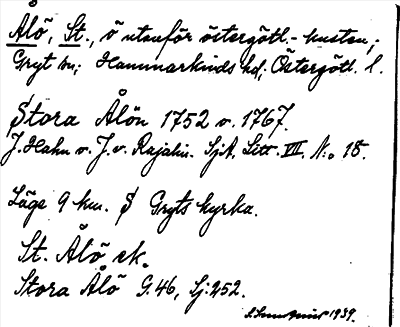 Ålö, St., ö utanför östergötl.- kusten;
Gryt sn; Hammarkinds hd; Östergötl. l.
Stora Ålön 1752 o. 1767.
J. Hahn o. J. v. Rajalin. SjA. Litt. III. N:o 18.
Läge 9 km. S Gryts kyrka.
St. Ålö ek.
Stora Ålö G.46, Sj:252.
1939.